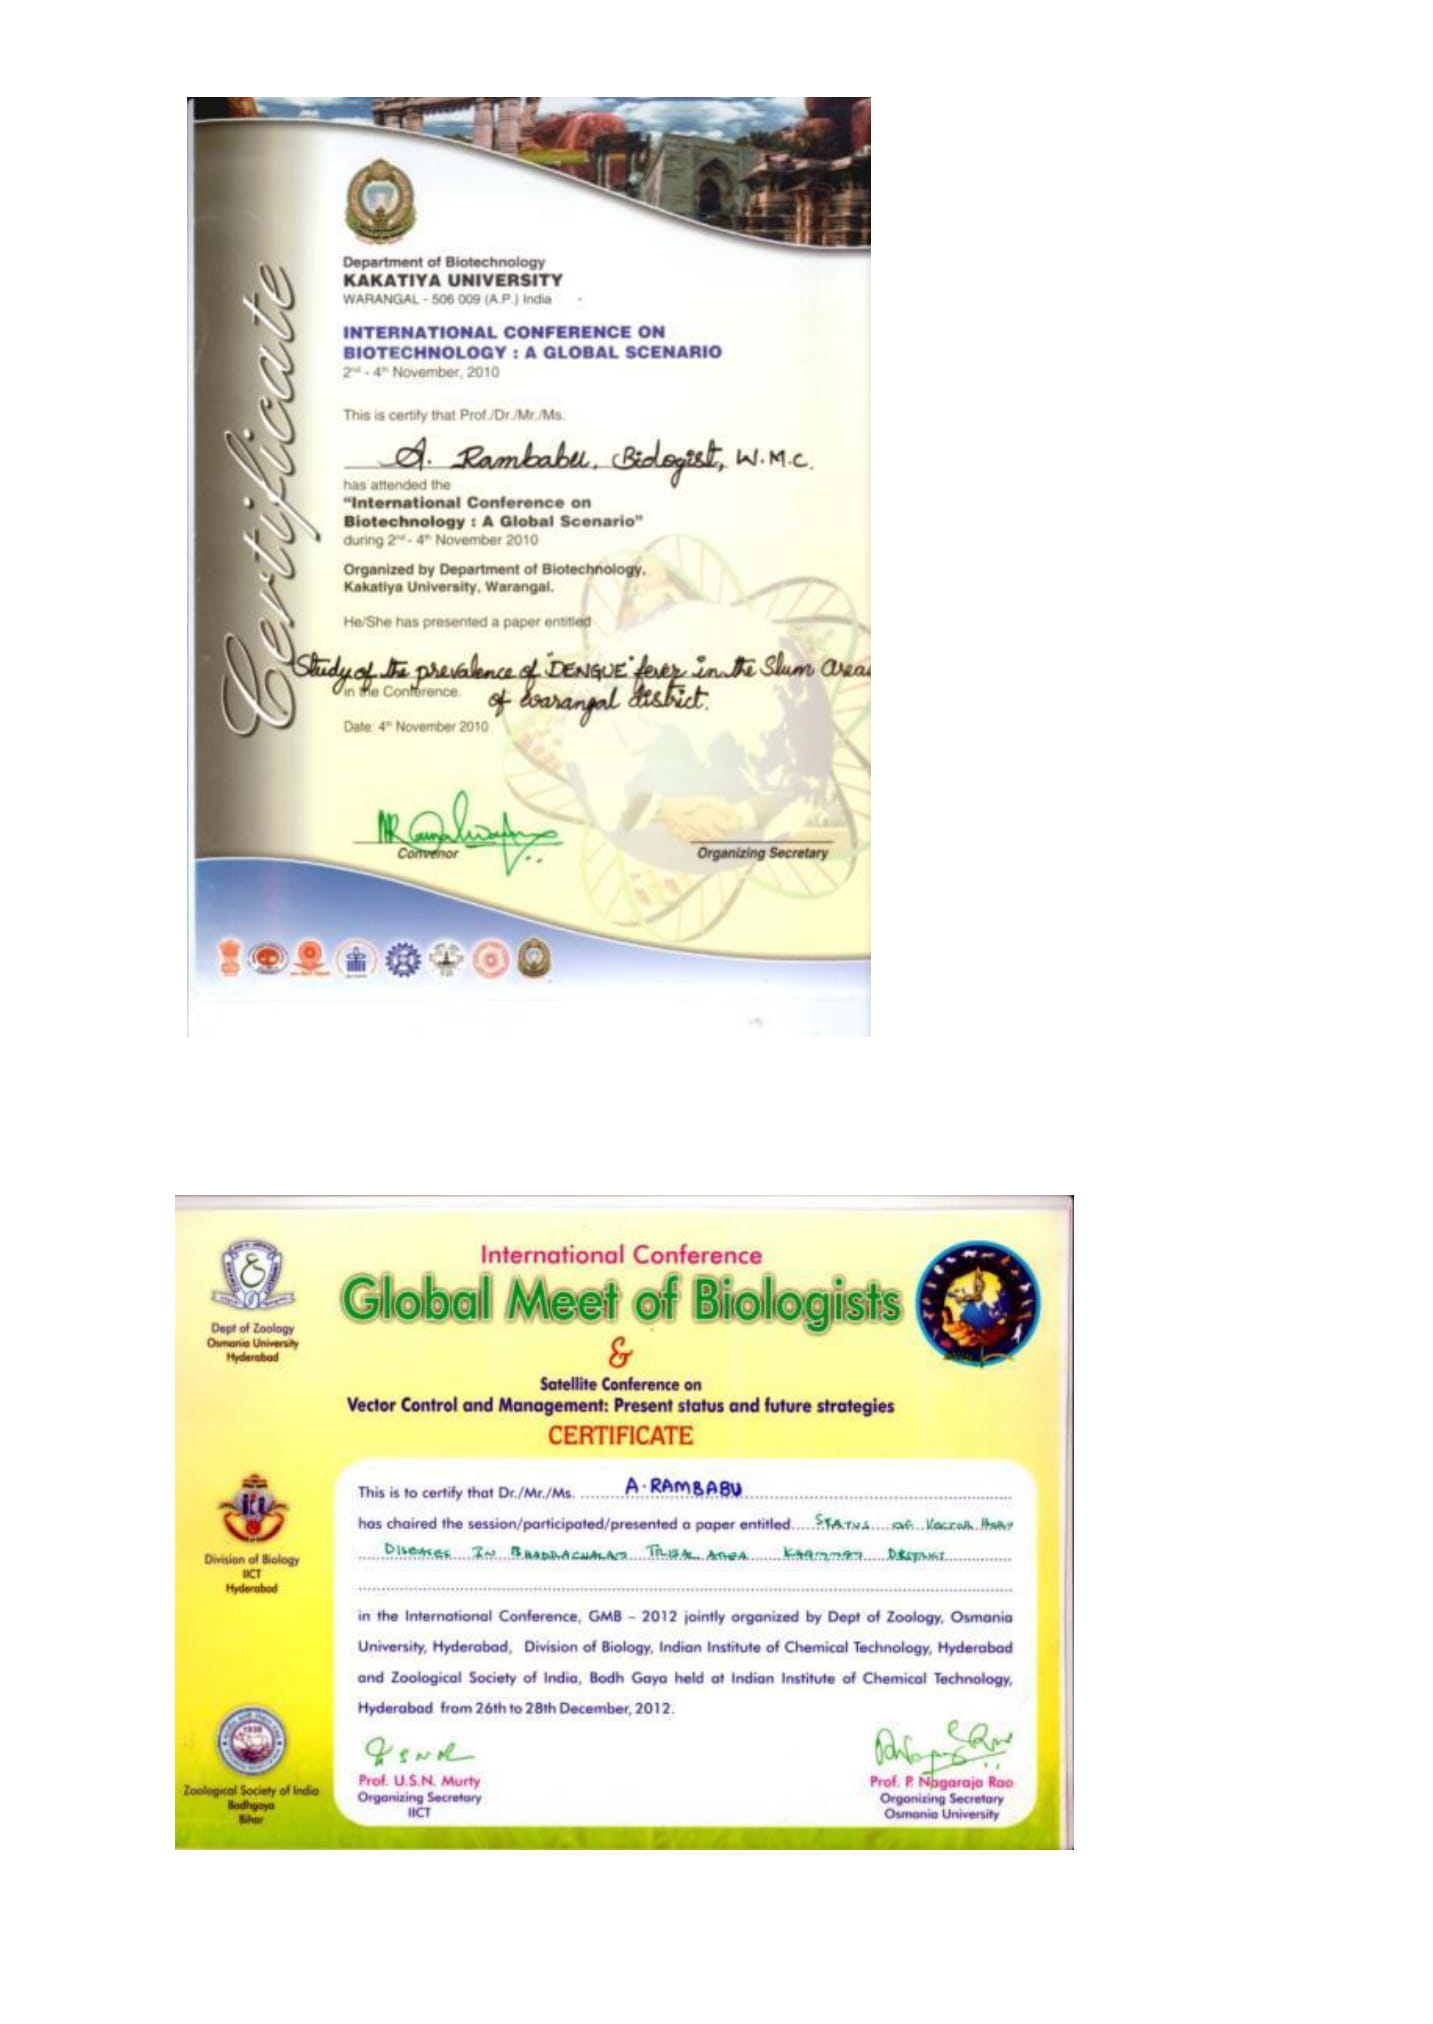 Certificate
Department of Biotechnology
KAKATIYA UNIVERSITY
WARANGAL - 506 009 (A.P.) India
INTERNATIONAL CONFERENCE ON
BIOTECHNOLOGY : A GLOBAL SCENARIO
2nd - 4th November, 2010
This is certify that Prof./Dr./Mr./Ms.
A. Rambabu, Biologist, W.M.C.
has attended the
"International Conference on
Biotechnology : A Global Scenario"
during 2nd - 4th November 2010
Organized by Department of Biotechnology,
Kakatiya University, Warangal.
He/She has presented a paper entitled
Study of the prevalence of "DENGUE" fever in the Slum Areas
in the Conference. of Warangal district.
Date: 4th November 2010
Convenor Organizing Secretary
International Conference
Global Meet of Biologists
&
Satellite Conference on
Vector Control and Management: Present status and future strategies
CERTIFICATE
Dept of Zoology
Osmania University
Hyderabad
This is to certify that Dr./Mr./Ms. A. RAMBABU
has chaired the session/participated/presented a paper entitled STATUS OF VECTOR
DISEASES IN BHADRACHALAM TRIBAL AREA KHAMMAM DISTRICT
Division of Biology
IICT
Hyderabad
in the International Conference, GMB – 2012 jointly organized by Dept of Zoology, Osmania
University, Hyderabad, Division of Biology, Indian Institute of Chemical Technology, Hyderabad
and Zoological Society of India, Bodh Gaya held at Indian Institute of Chemical Technology,
Hyderabad from 26th to 28th December, 2012.
1938
Zoological Society of India
Bodhgaya
Bihar
Prof. U.S.N. Murty
Organizing Secretary
IICT
Prof. P. Nagaraja Rao
Organizing Secretary
Osmania University